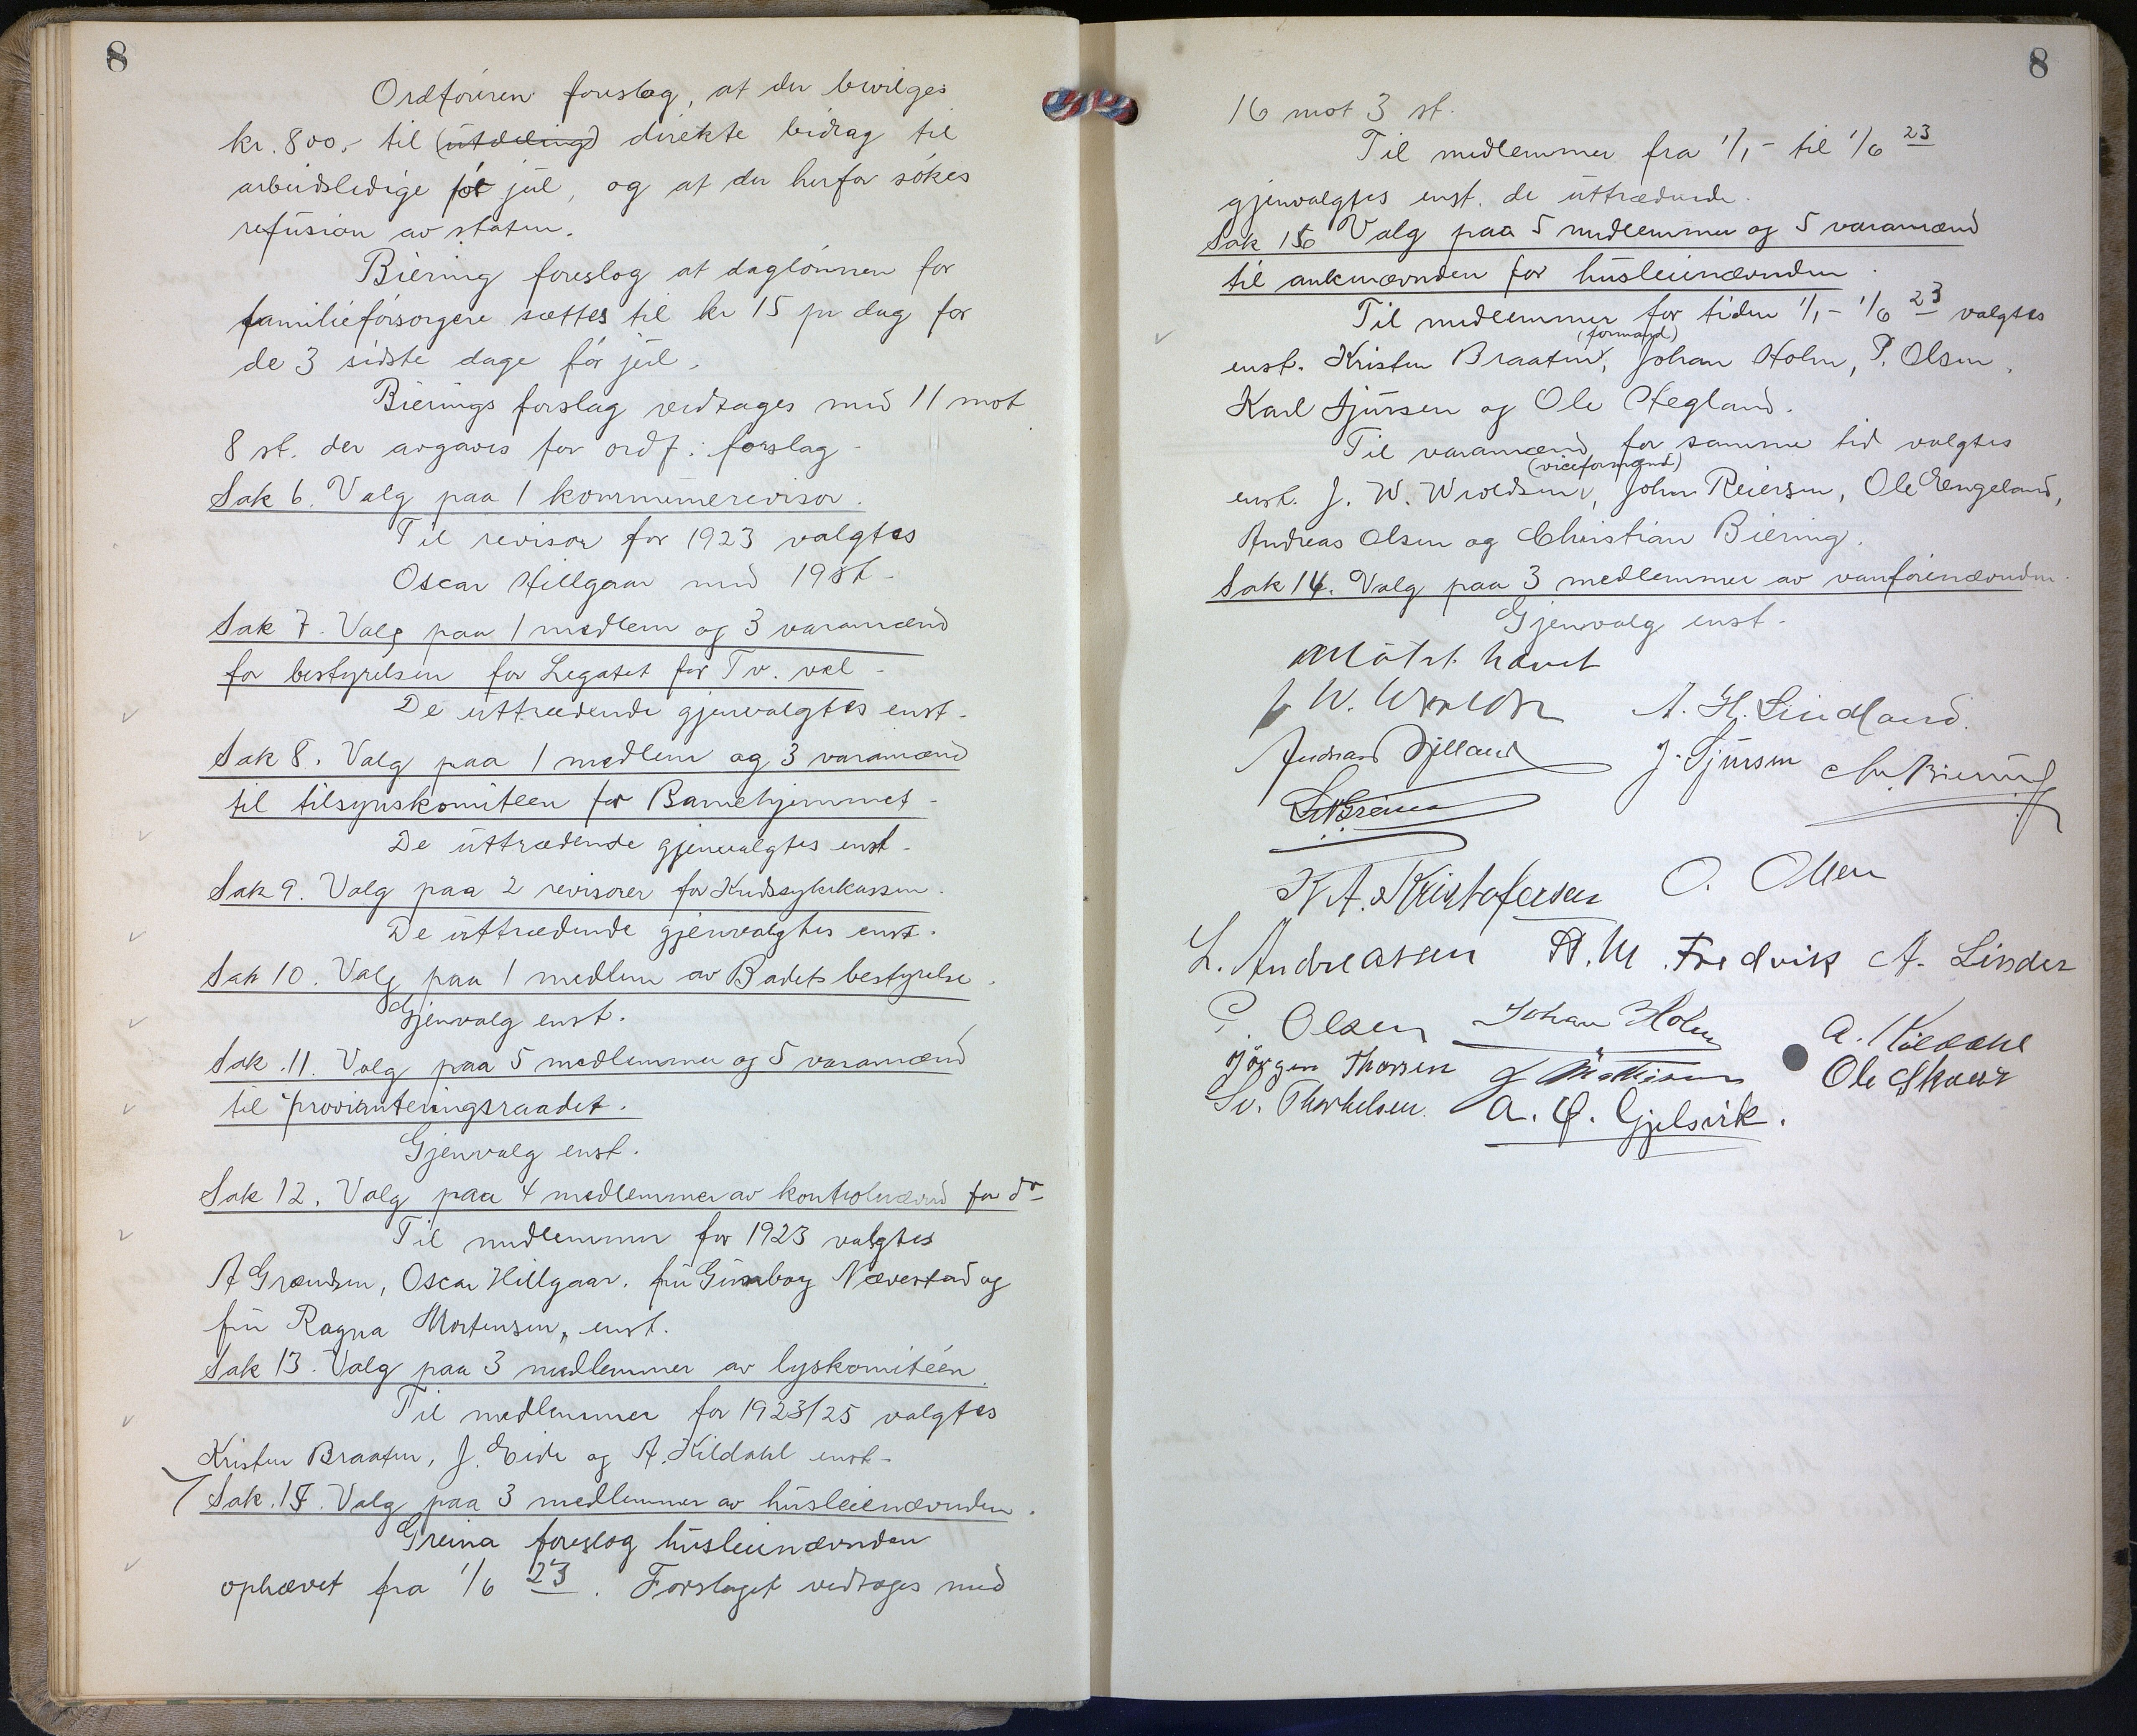 8
Ordføreren foreslog, at der bevilges
kr. 800,- til (utdeling) direkte bidrag til
arbeidsledige før jul, og at der herfor søkes
refusion av staten.
Biering foreslog at daglønnen for
familieforsørgere sættes til kr 15 pr dag for
de 3 sidste dage før jul.
Bierings forslag vedtages med 11 mot
8 st. der avgaves for ordf: forslag -
Sak 6. Valg paa 1 kommunerevisor.
Til revisor for 1923 valgtes
Oscar Hillgaar med 19 st -
Sak 7. Valg paa 1 medlem og 3 varamænd
for bestyrelsen for Legatet for Tv. vel -
De uttrædende gjenvalgtes enst -
Sak 8. Valg paa 1 medlem og 3 varamænd
til tilsynskomiteen for Barnehjemmet -
De uttrædende gjenvalgtes enst -
Sak 9. Valg paa 2 revisorer for Kredssykekassen.
De uttrædende gjenvalgtes enst.
Sak 10. Valg paa 1 medlem av Badets bestyrelse.
Gjenvalg enst.
Sak 11. Valg paa 5 medlemmer og 5 varamænd
til provianteringsraadet.
Gjenvalg enst.
Sak 12. Valg paa 4 medlemmer av kontrolnævnd for do
Til medlemmer for 1923 valgtes
A Grændsen, Oscar Hillgaar, fru Gunborg Næverstad og
fru Ragna Mortensen, enst.
Sak 13. Valg paa 3 medlemmer av lyskomitéen.
Til medlemmer for 1923/25 valgtes
Kristen Braaten, J. Eide og A. Kildahl enst -
Sak. 15. Valg paa 3 medlemmer av husleienævnden.
Greina foreslog husleienævnden
ophævet fra 1/6 23. Forslaget vedtages med
8
16 mot 3 st.
Til medlemmer fra 1/1 - til 1/6 23
gjenvalgtes enst. de uttrædende.
Sak 16 Valg paa 5 medlemmer og 5 varamænd
til ankenævnden for husleienævnden.
Til medlemmer for tiden 1/1 - 1/6 23 valgtes
(formand)
enst. Kristen Braaten, Johan Holm, P. Olsen,
Karl Sjursen og Ole Hegland.
Til varamænd for samme tid valgtes
(viceformand)
enst. J. W. Wroldsen, John Reiersen, Ole Engeland,
Andreas Olsen og Christian Biering.
Sak 14. Valg paa 3 medlemmer av vanførenævnden.
Gjenvalg enst -
Møtet hævet
J. W. Wroldsen A. H. Lindland.
Andreas Fjelland J. Sjursen Chr. Biering
Greina
K A. Kristofersen O. Olsen
L. Andreassen A. M. Fredvik A. Linder
P. Olsen Johan Holm A. Kildahl
Jørgen Thorsen J Mathisen Ole Skaar
Sv. Thorkelsen. A. O. Gjelsvik.